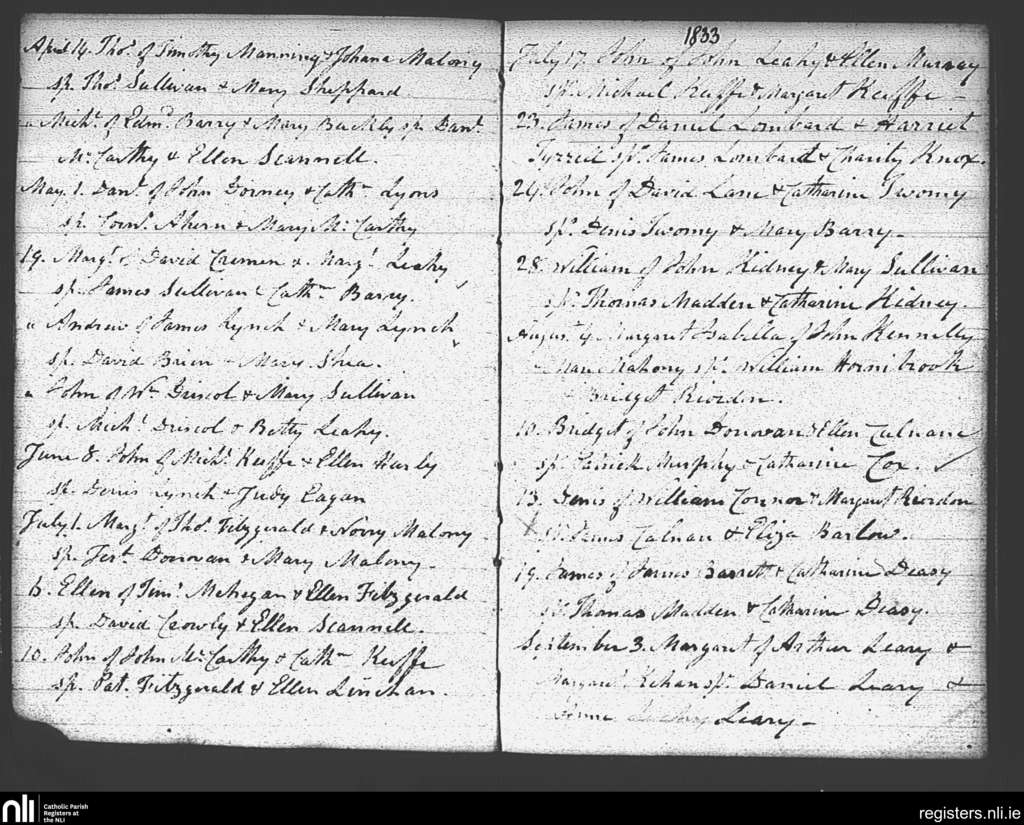 April 14. Thos. of Timothy Manning & Johana Malony
sp. Thos. Sullivan & Mary Sheppard.
" Michl. of Edmd. Barry & Mary Buckly sp. Danl.
McCarthy & Ellen Scannell.
May. 1. Danl. of John Dorney & Cathn Lyons
sp. Corns. Ahern & Mary McCarthy
19. Margt. of David Cremen & Margt. Leahy
sp. James Sullivan & Cathn Barry.
" Andrew of James Lynch & Mary Lynch
sp. David Brien & Mary Shea.
" John of Wm Driscol & Mary Sullivan
sp. Michl Driscol & Betty Leahy.
June 8. John of Michl. Keeffe & Ellen Hurly
sp. Denis Lynch & Judy Eagan
July 1. Margt. of Thos. Fitzgerald & Norry Malony
sp. Donovan & Mary Malony.
Ellen of Timy. Mehegan & Ellen Fitzgerald
sp. David Crowly & Ellen Scannell.
10. John of John McCarthy & Cathn Keeffe
sp. Pat. Fitzgerald & Ellen Linehan.
1833
July 17. John of John Leahy & Ellen Murray
sp. Michael Keeffe & Margaret Keeffe —
23. James of Daniel Lombard & Harriet
Tyrrell sps. James Lombard & Charity Knox.
24. John of David Lane & Catharine Twomy
sps. Denis Twomy & Mary Barry —
28. William of John Kidney & Mary Sullivan
sps. Thomas Madden & Catharine Kidney.
August 4. Margaret Isabella of John Kennelly
Mahony sps. William Hornibrook
& Bridget Riordon.
10. Bridget of John Donovan & Ellen Culnane
sp. Patrick Murphy & Catharine Cox.
13. Denis of William Connor & Margaret Riordon
sps. Calnan & Eliza Barlow.
19. James of James Barrett & Catharine Deasy
sps. Thomas Madden & Catharine Deasy.
September 3. Margaret of Arthur Leary &
Margaret Kehan sps. Daniel Leary &
Anne Leary —
nli
Catholic Parish
Registers at
the NLI
registers.nli.ie